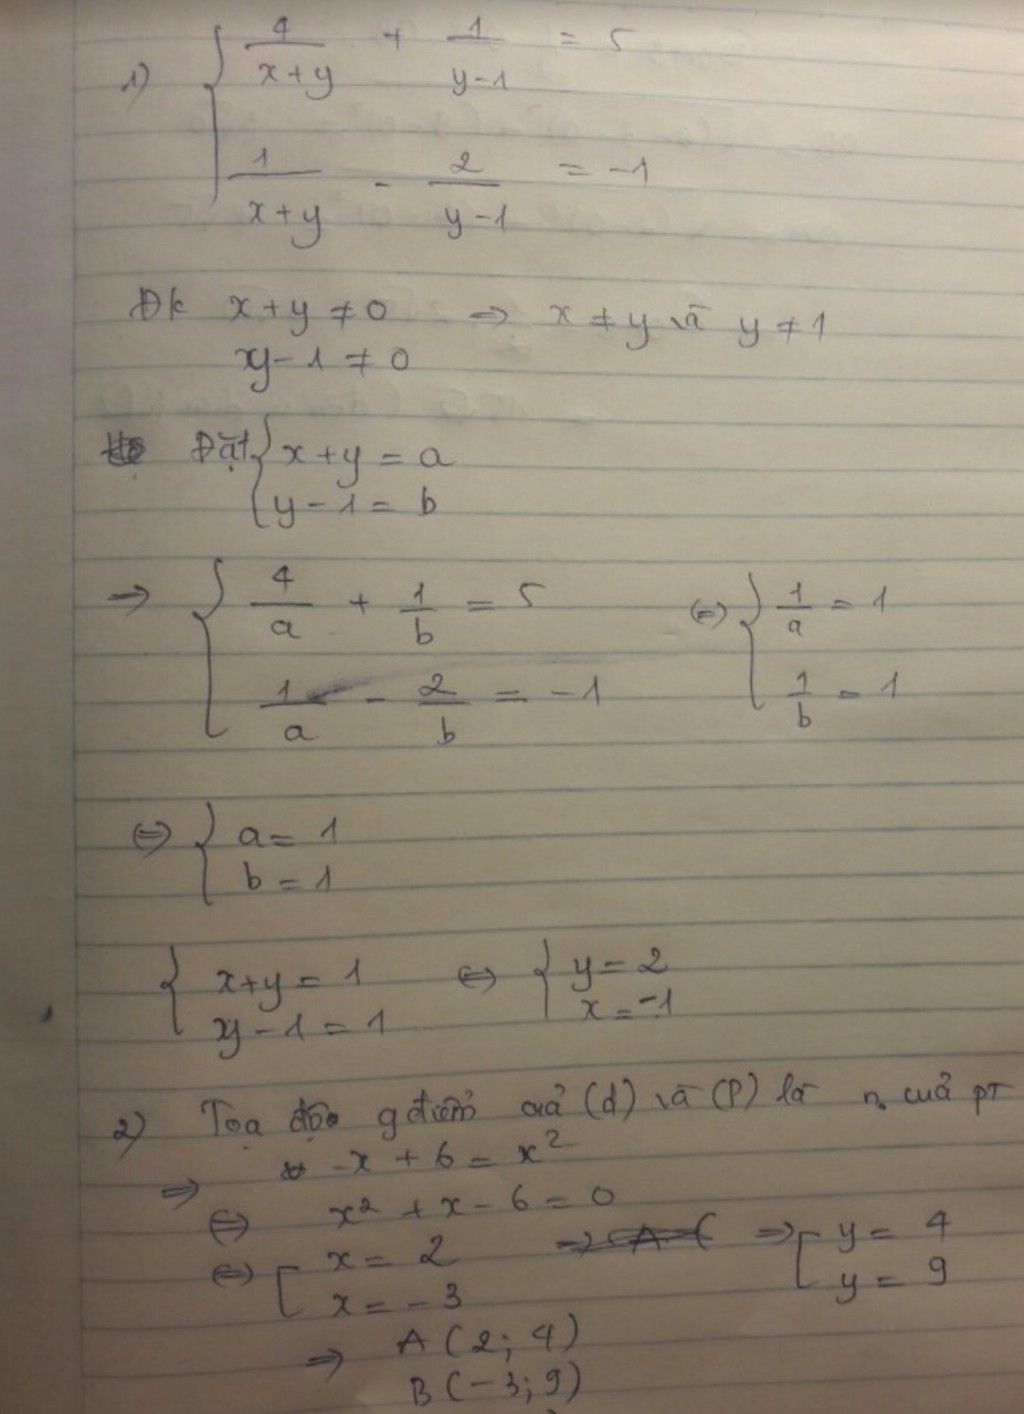 1) { 4/(x+y) + 1/(y-1) = 5
1/(x+y) - 2/(y-1) = -1
Đk x+y ≠ 0 ⇒ x ≠ y và y ≠ 1
y-1 ≠ 0
Đặt { x+y = a
y-1 = b
⇒ { 4/a + 1/b = 5 (⇔) { 1/a = 1
1/a - 2/b = -1 1/b = 1
⇔ { a = 1
b = 1
{ x+y = 1 ⇔ { y = 2
y-1 = 1 x = -1
2) Tọa độ gđiểm của (d) và (P) là n0 của pT
⇒ -x + 6 = x²
⇔ x² + x - 6 = 0
⇔ [ x = 2 ⇒ [ y = 4
x = -3 y = 9
⇒ A(2; 4)
B(-3; 9)